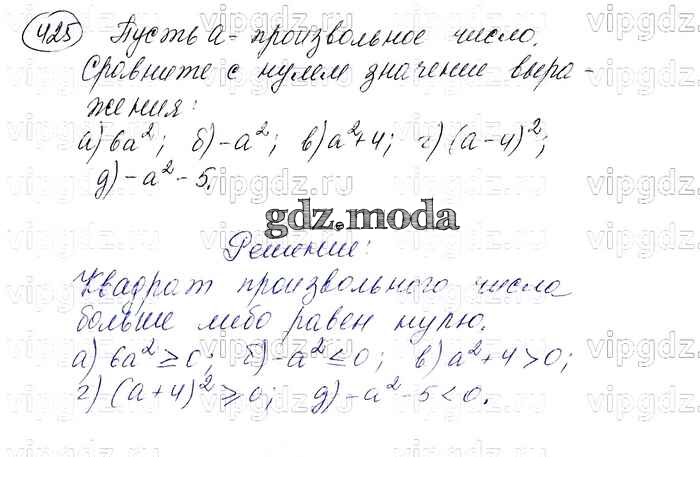 425 Пусть a - произвольное число.
Сравните с нулем значение выра-
жения:
а) 6a²; б) -a²; в) a²+4; г) (a-4)²;
д) -a²-5.
gdz.moda
Решение:
Квадрат произвольного числа
больше либо равен нулю.
а) 6a²≥0; б) -a²≤0; в) a²+4>0;
г) (a+4)²≥0; д) -a²-5<0.
vipgdz.ru